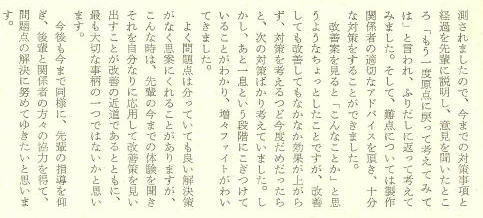 測されましたので、今までの対策事項と
経過を先輩に説明し、意見を聞いたとこ
ろ「もう一度原点に戻って考えてみて
は」と言われ、ふりだしに返って考えて
みました。そして、難点については製作
関係者の適切なアドバイスを頂き、十分
な対策をすることができました。
改善案を見ると「こんなことか」と思
うようなちょっとしたことですが、改善
しても改善してもなかなか効果が上がら
ず、対策を考えるつど今度だめだったら
と、次の対策ばかり考えていました。し
かし、あと一息という段階にこぎつけて
いることがわかり、増々ファイトがわい
てきました。
よく問題点は分っていても良い解決策
がなく思案にくれることがありますが、
こんな時は、先輩の今までの体験を聞き
それを自分なりに応用して改善策を見い
出すことが改善の近道であるとともに、
最も大切な事柄の一つではないかと思い
ます。
今後も今まで同様に、先輩の指導を仰
ぎ、後輩と関係者の方々の協力を得て、
問題点の解決に努めてゆきたいと思いま
す。